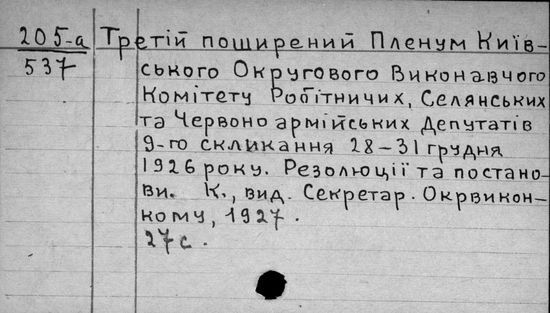 205-а Третій поширений Пленум Київ-
537 ського Округового Виконавчого
Комітету Робітничих, Селянських
та Червоно армійських Депутатів
9-го скликання 28-31 грудня
1926 року. Резолюції та постано-
ви. К., вид. Секретар. Окрвикон-
кому, 1927.
27 с.